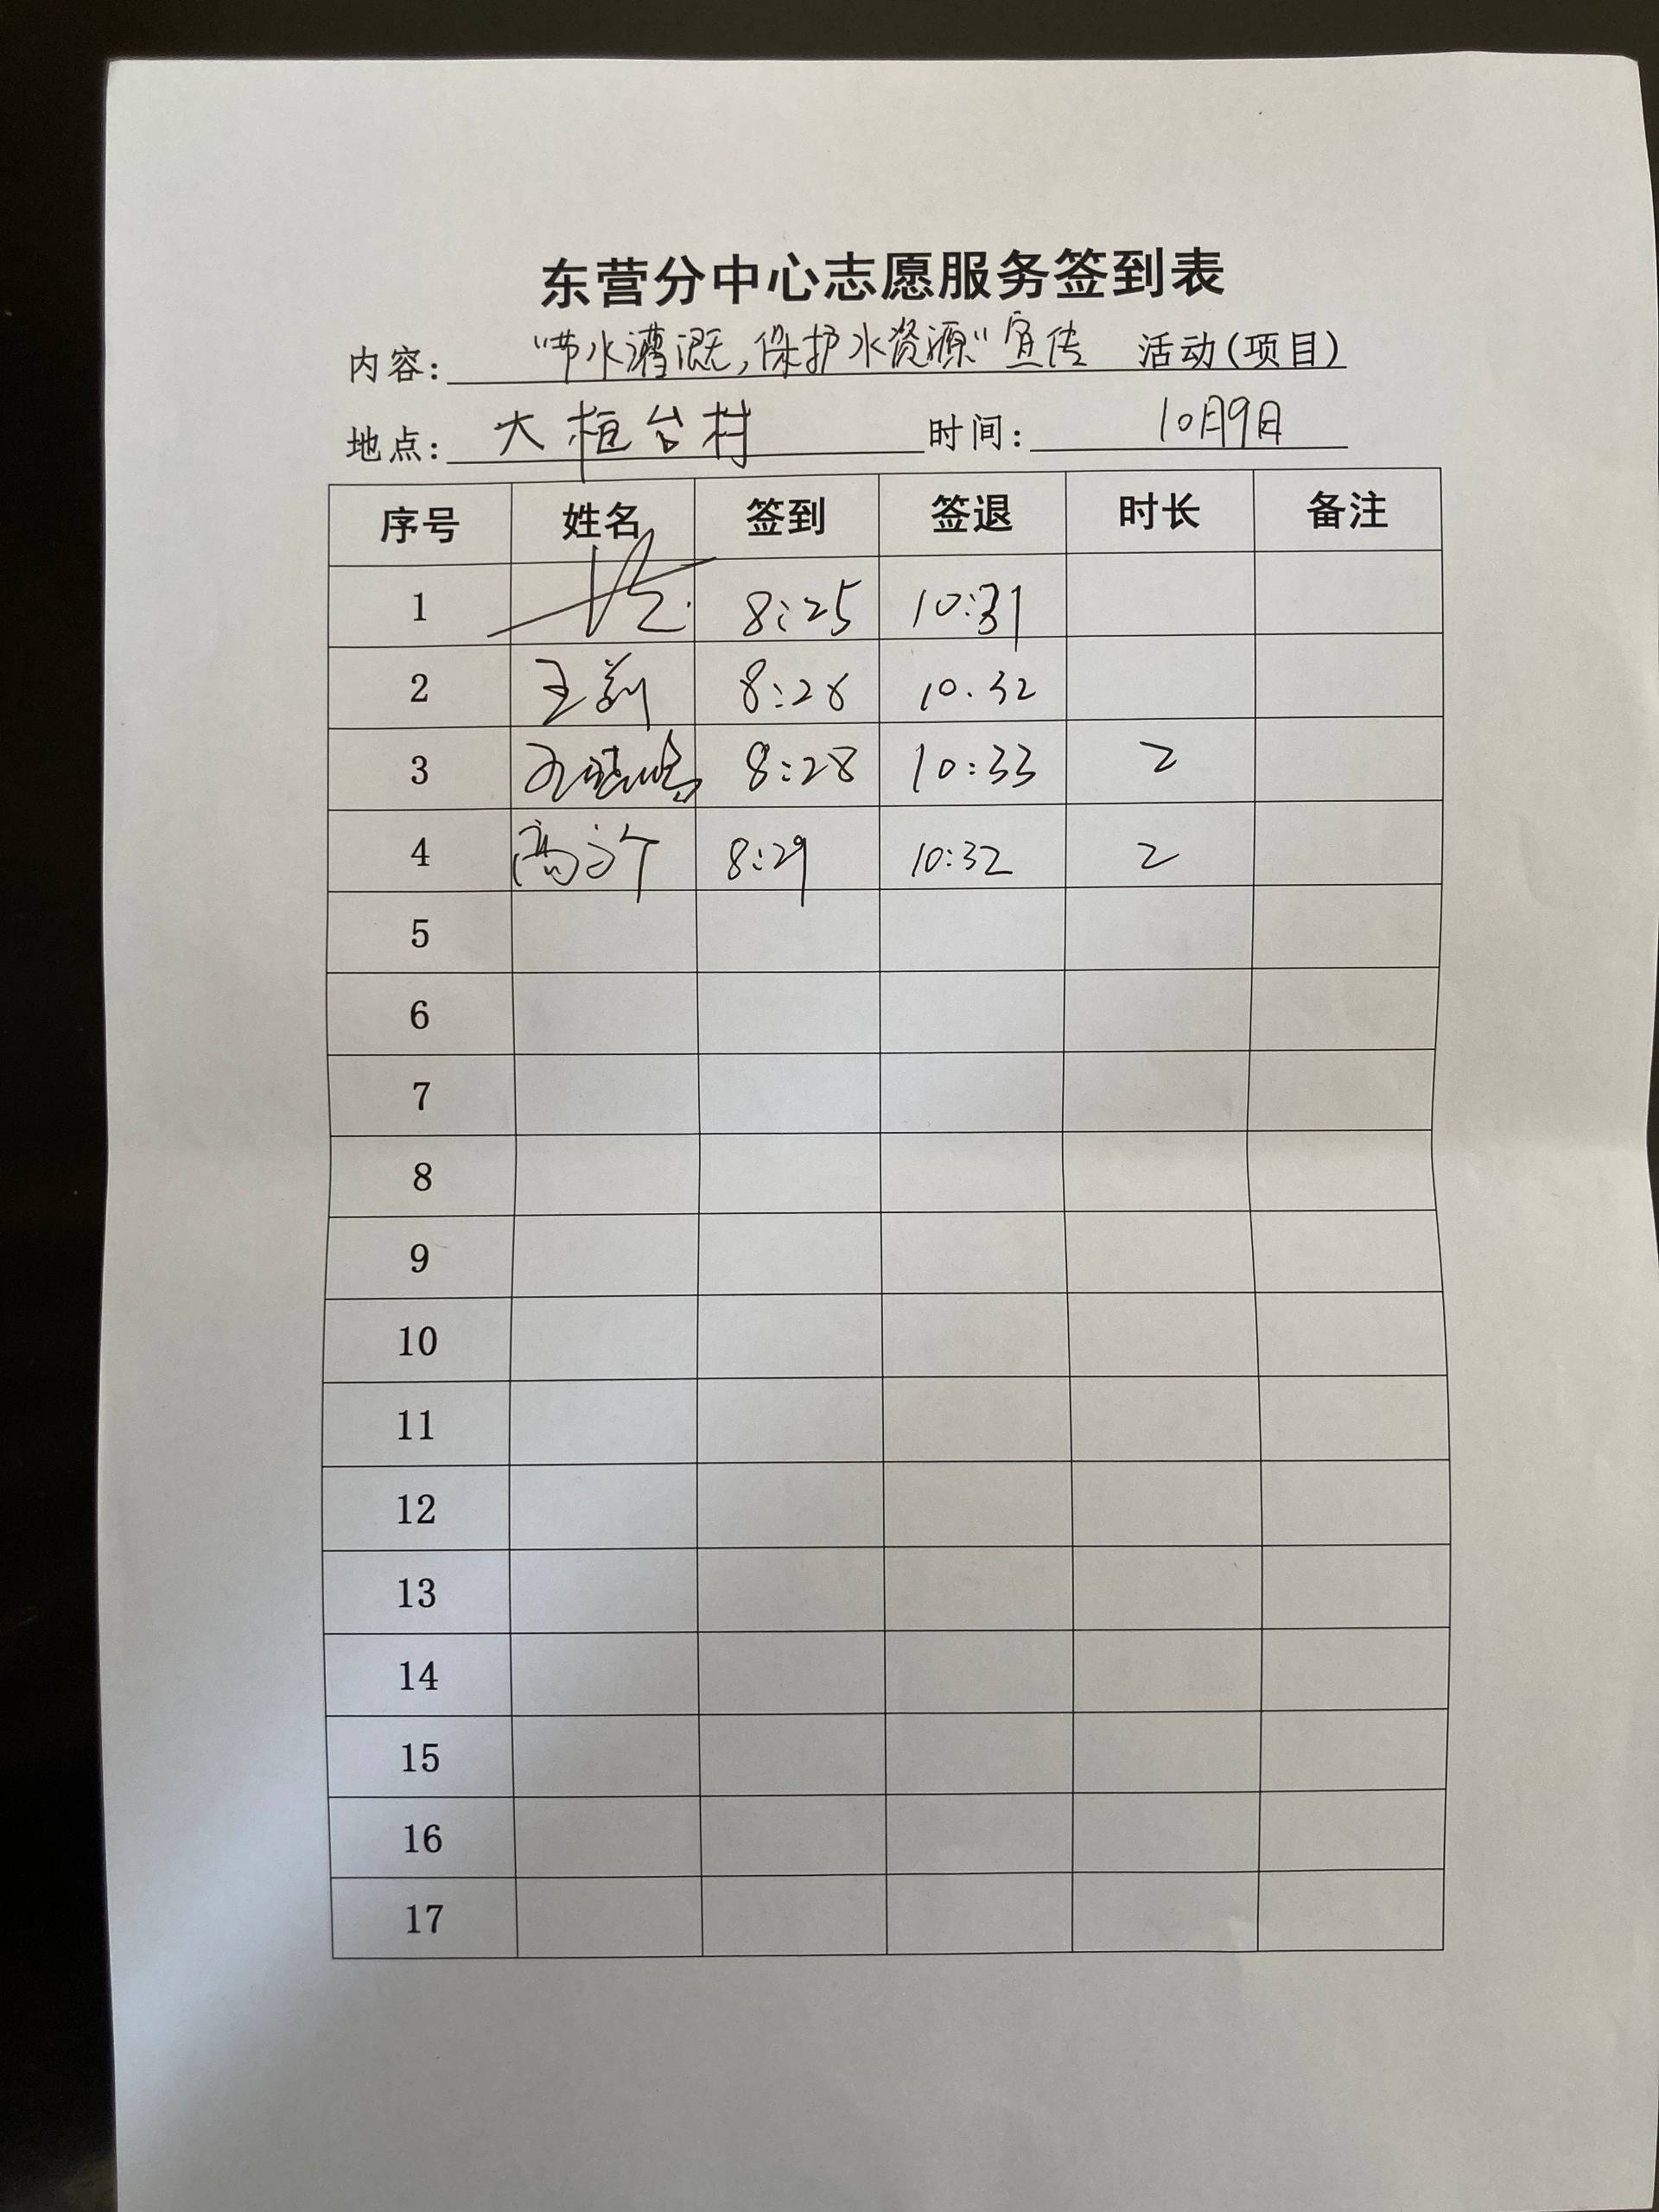 东营分中心志愿服务签到表
内容: "节水灌溉,保护水资源"宣传 活动(项目)
地点: 大桓台村 时间: 10月9日
序号 姓名 签到 签退 时长 备注
1 8:25 10:31
2 王莉 8:26 10.32
3 8:28 10:33 2
4 高 8:29 10:32 2
5
6
7
8
9
10
11
12
13
14
15
16
17